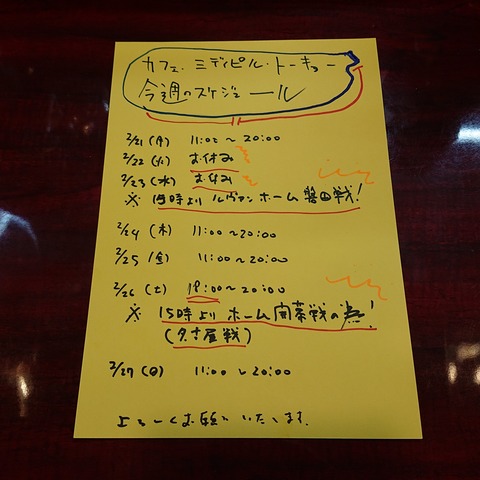 カフェ・ミディピル・トーキョー
今週のスケジュール
2/21(月) 11:00〜20:00
2/22(火) お休み
2/23(水) お休み
※ 15時より ルヴァンホーム 磐田戦!
2/24(木) 11:00〜20:00
2/25(金) 11:00〜20:00
2/26(土) 18:00〜20:00
※ 15時より ホーム開幕戦の為!
(名古屋戦)
2/27(日) 11:00〜20:00
よろしくお願いいたします。